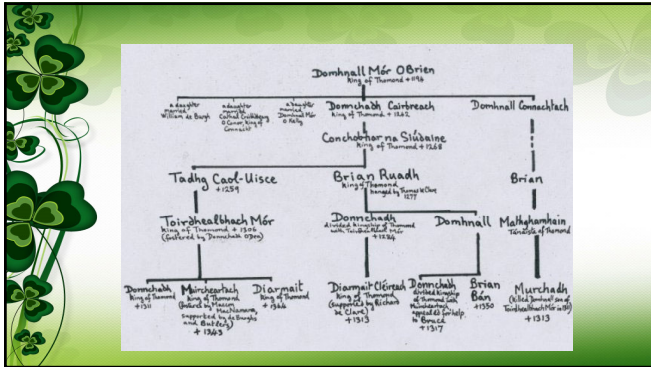 Domhnall Mór OBrien
King of Thomond +1194
a daughter married William de Burgh
a daughter married Cathal Croibhdearg O Conor, King of Connacht
a daughter married Domhnall Mór O Kelly
Donnchadh Cairbreach
King of Thomond +1242
Domhnall Connachtach
Conchobhar na Siúdaine
King of Thomond +1268
Tadhg Caol-Uisce
+1259
Brian Ruadh
King of Thomond
hanged by Thomas de Clare
1277
Brian
Toirdhealbhach Mór
King of Thomond +1306
(fostered by Donnchadh O Dea)
Donnchadh
divided kingship of Thomond
with Toirdhealbhach Mór
+1284
Domhnall
Mathghamhain
Tánaiste of Thomond
Donnchadh
King of Thomond
+1311
Muircheartach
King of Thomond
(fostered by Maccon
MacNamara,
supported by de Burghs
and Butlers)
+1343
Diarmait
King of Thomond
+1364
Diarmait Cléireach
King of Thomond
(supported by Richard
de Clare)
+1313
Donnchadh
divided kingship
of Thomond with
Muircheartach
appealed for help
to Bruce
+1317
Brian
Bán
+1350
Murchadh
(killed Domhnall son of
Toirdhealbhach Mór in
+1313